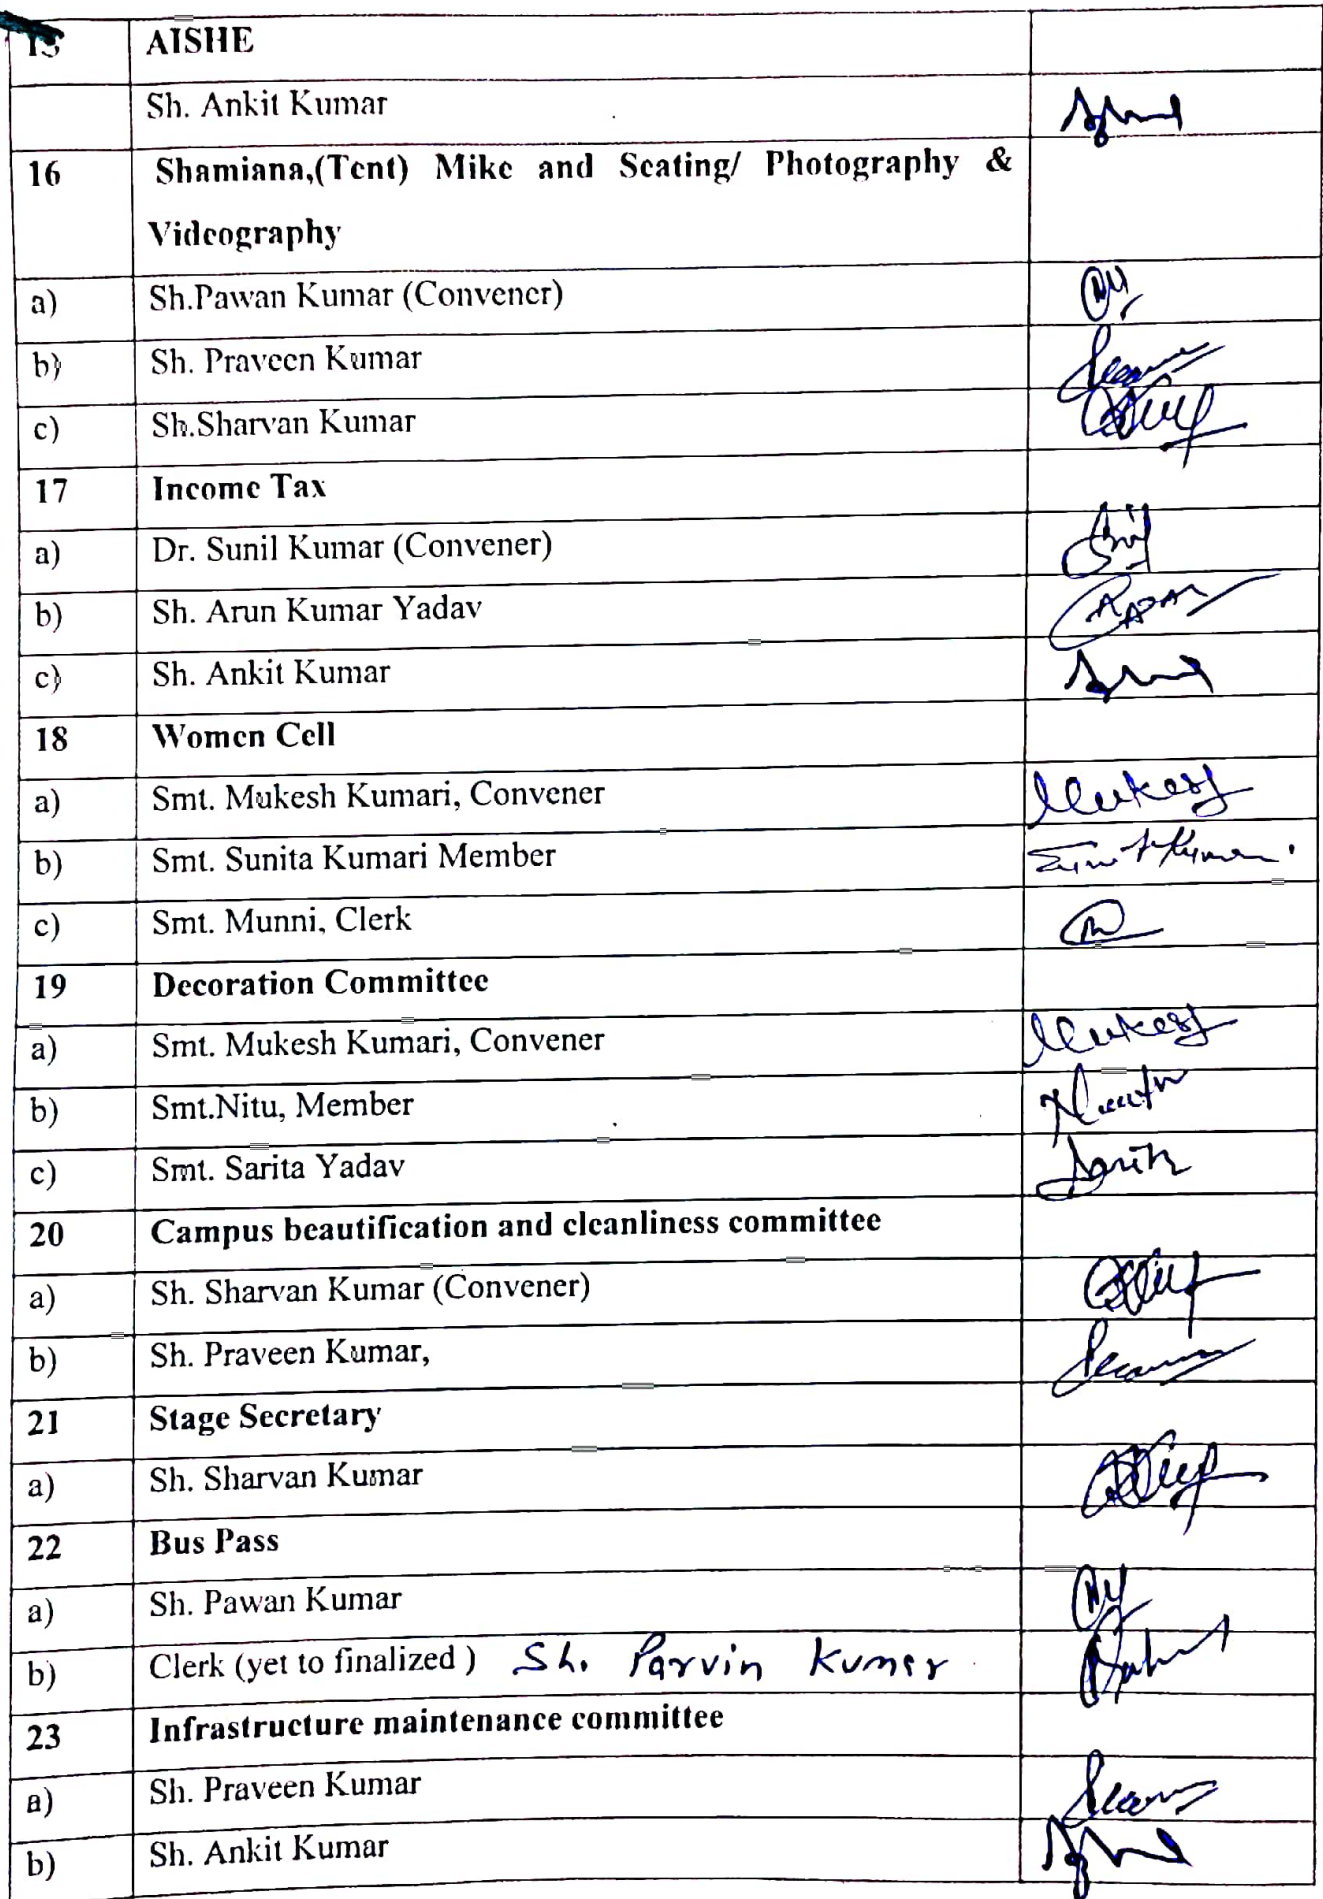 15 AISHE
Sh. Ankit Kumar
16 Shamiana,(Tent) Mike and Seating/ Photography &
Videography
a) Sh.Pawan Kumar (Convener)
b) Sh. Praveen Kumar
c) Sh.Sharvan Kumar
17 Income Tax
a) Dr. Sunil Kumar (Convener)
b) Sh. Arun Kumar Yadav
c) Sh. Ankit Kumar
18 Women Cell
a) Smt. Mukesh Kumari, Convener Mukesh
b) Smt. Sunita Kumari Member
c) Smt. Munni, Clerk
19 Decoration Committee
a) Smt. Mukesh Kumari, Convener Mukesh
b) Smt.Nitu, Member
c) Smt. Sarita Yadav
20 Campus beautification and cleanliness committee
a) Sh. Sharvan Kumar (Convener)
b) Sh. Praveen Kumar,
21 Stage Secretary
a) Sh. Sharvan Kumar
22 Bus Pass
a) Sh. Pawan Kumar
b) Clerk (yet to finalized ) Sh. Parvin Kumar
23 Infrastructure maintenance committee
a) Sh. Praveen Kumar
b) Sh. Ankit Kumar